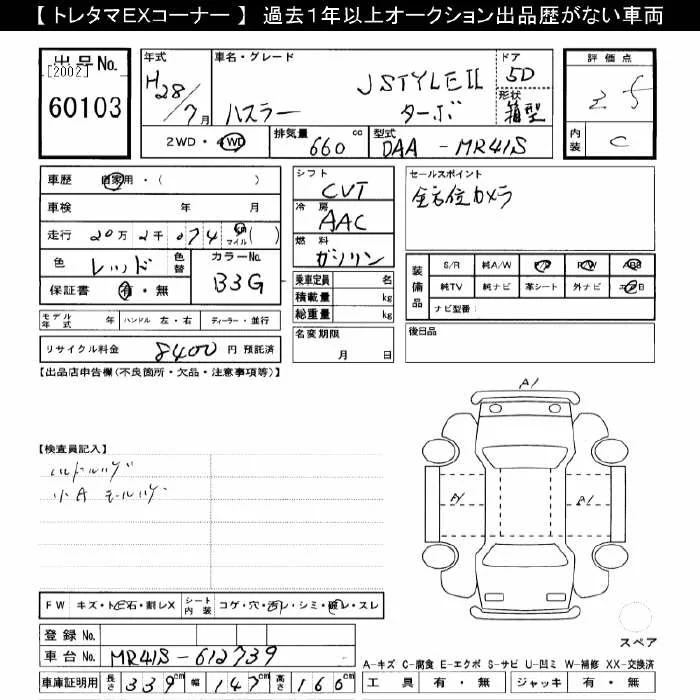 【 トレタマEXコーナー 】 過去1年以上オークション出品歴がない車両
出品No.
[2002]
60103
年式
H28/7月
車名・グレード
ハスラー
J STYLE II
ターボ
ドア
5D
形状
箱型
評価点
内装
C
2WD・4WD
排気量 660 cc
型式 DAA - MR41S
車歴 自家用・( )
車検 年 月
走行 20万 2千 074 km マイル ( )
色 レッド 色替
カラーNo. B3G
保証書 有・無
モデル年式 年 ハンドル 左・右 ディーラー・並行
リサイクル料金 8400 円 預託済
シフト CVT
冷房 AAC
燃料 ガソリン
乗車定員 名
積載量 kg
総重量 kg
名変期限
月 日
セールスポイント
全方位カメラ
装備品
S/R 純A/W P/S P/W ABS
純TV 純ナビ 革シート 外ナビ エアB
ナビ型番:
後日品
【出品店申告欄(不良箇所・欠品・注意事項等)】
A1
A1
A1
【検査員記入】
ハンドルハゲ
小A モールハゲ
FW キズ・トビ石・割レX
シート内装 コゲ・穴・汚レ・シミ・破レ・スレ
登録No.
車台No. MR41S-612739
車庫証明用 長さ 339cm 幅 147cm 高さ 166cm
スペア
A-キズ C-腐食 E-エクボ S-サビ U-凹ミ W-補修 XX-交換済
工具 有・無 ジャッキ 有・無